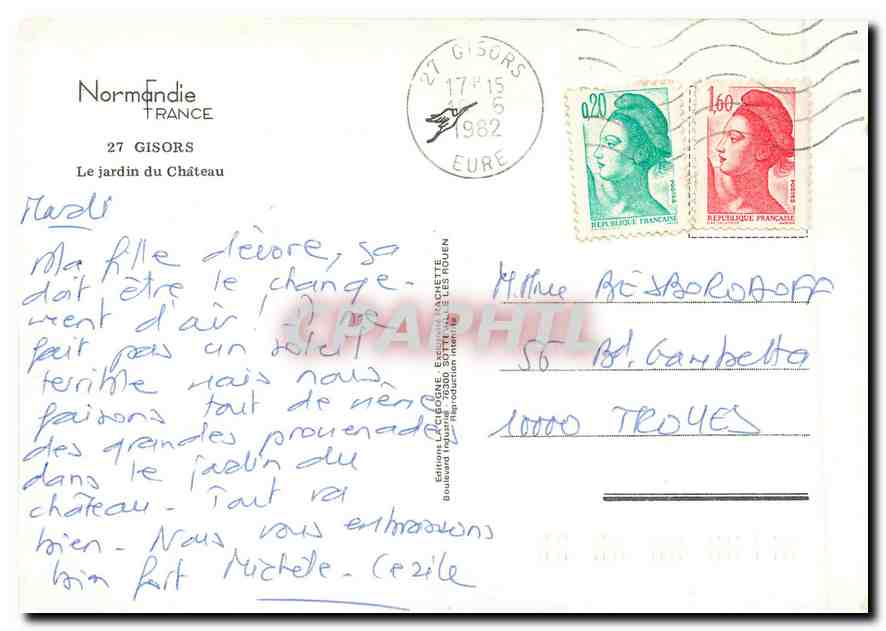 Normandie
FRANCE
27 GISORS
Le jardin du Château
27 GISORS
17 H 15
6
1982
EURE
0,20
POSTES
REPUBLIQUE FRANÇAISE
1,60
POSTES
REPUBLIQUE FRANÇAISE
Mardi
Ma fille dévore, sa
doit être le change-
ment d'air ! ne
fait pas un soleil
terrible mais nous
faisons tout de même
des grandes promenades
dans le jardin du
château - Tout va
bien - Nous vous embrassons
bien fort Michèle - Cecile
Editions LA CIGOGNE - Exclusivité HACHETTE
Boulevard Industriel - 76300 SOTTEVILLE LES ROUEN
Reproduction interdite
CPAPHIL
M. Mme BESBORODOFF
56 Bd. Gambetta
10000 TROYES